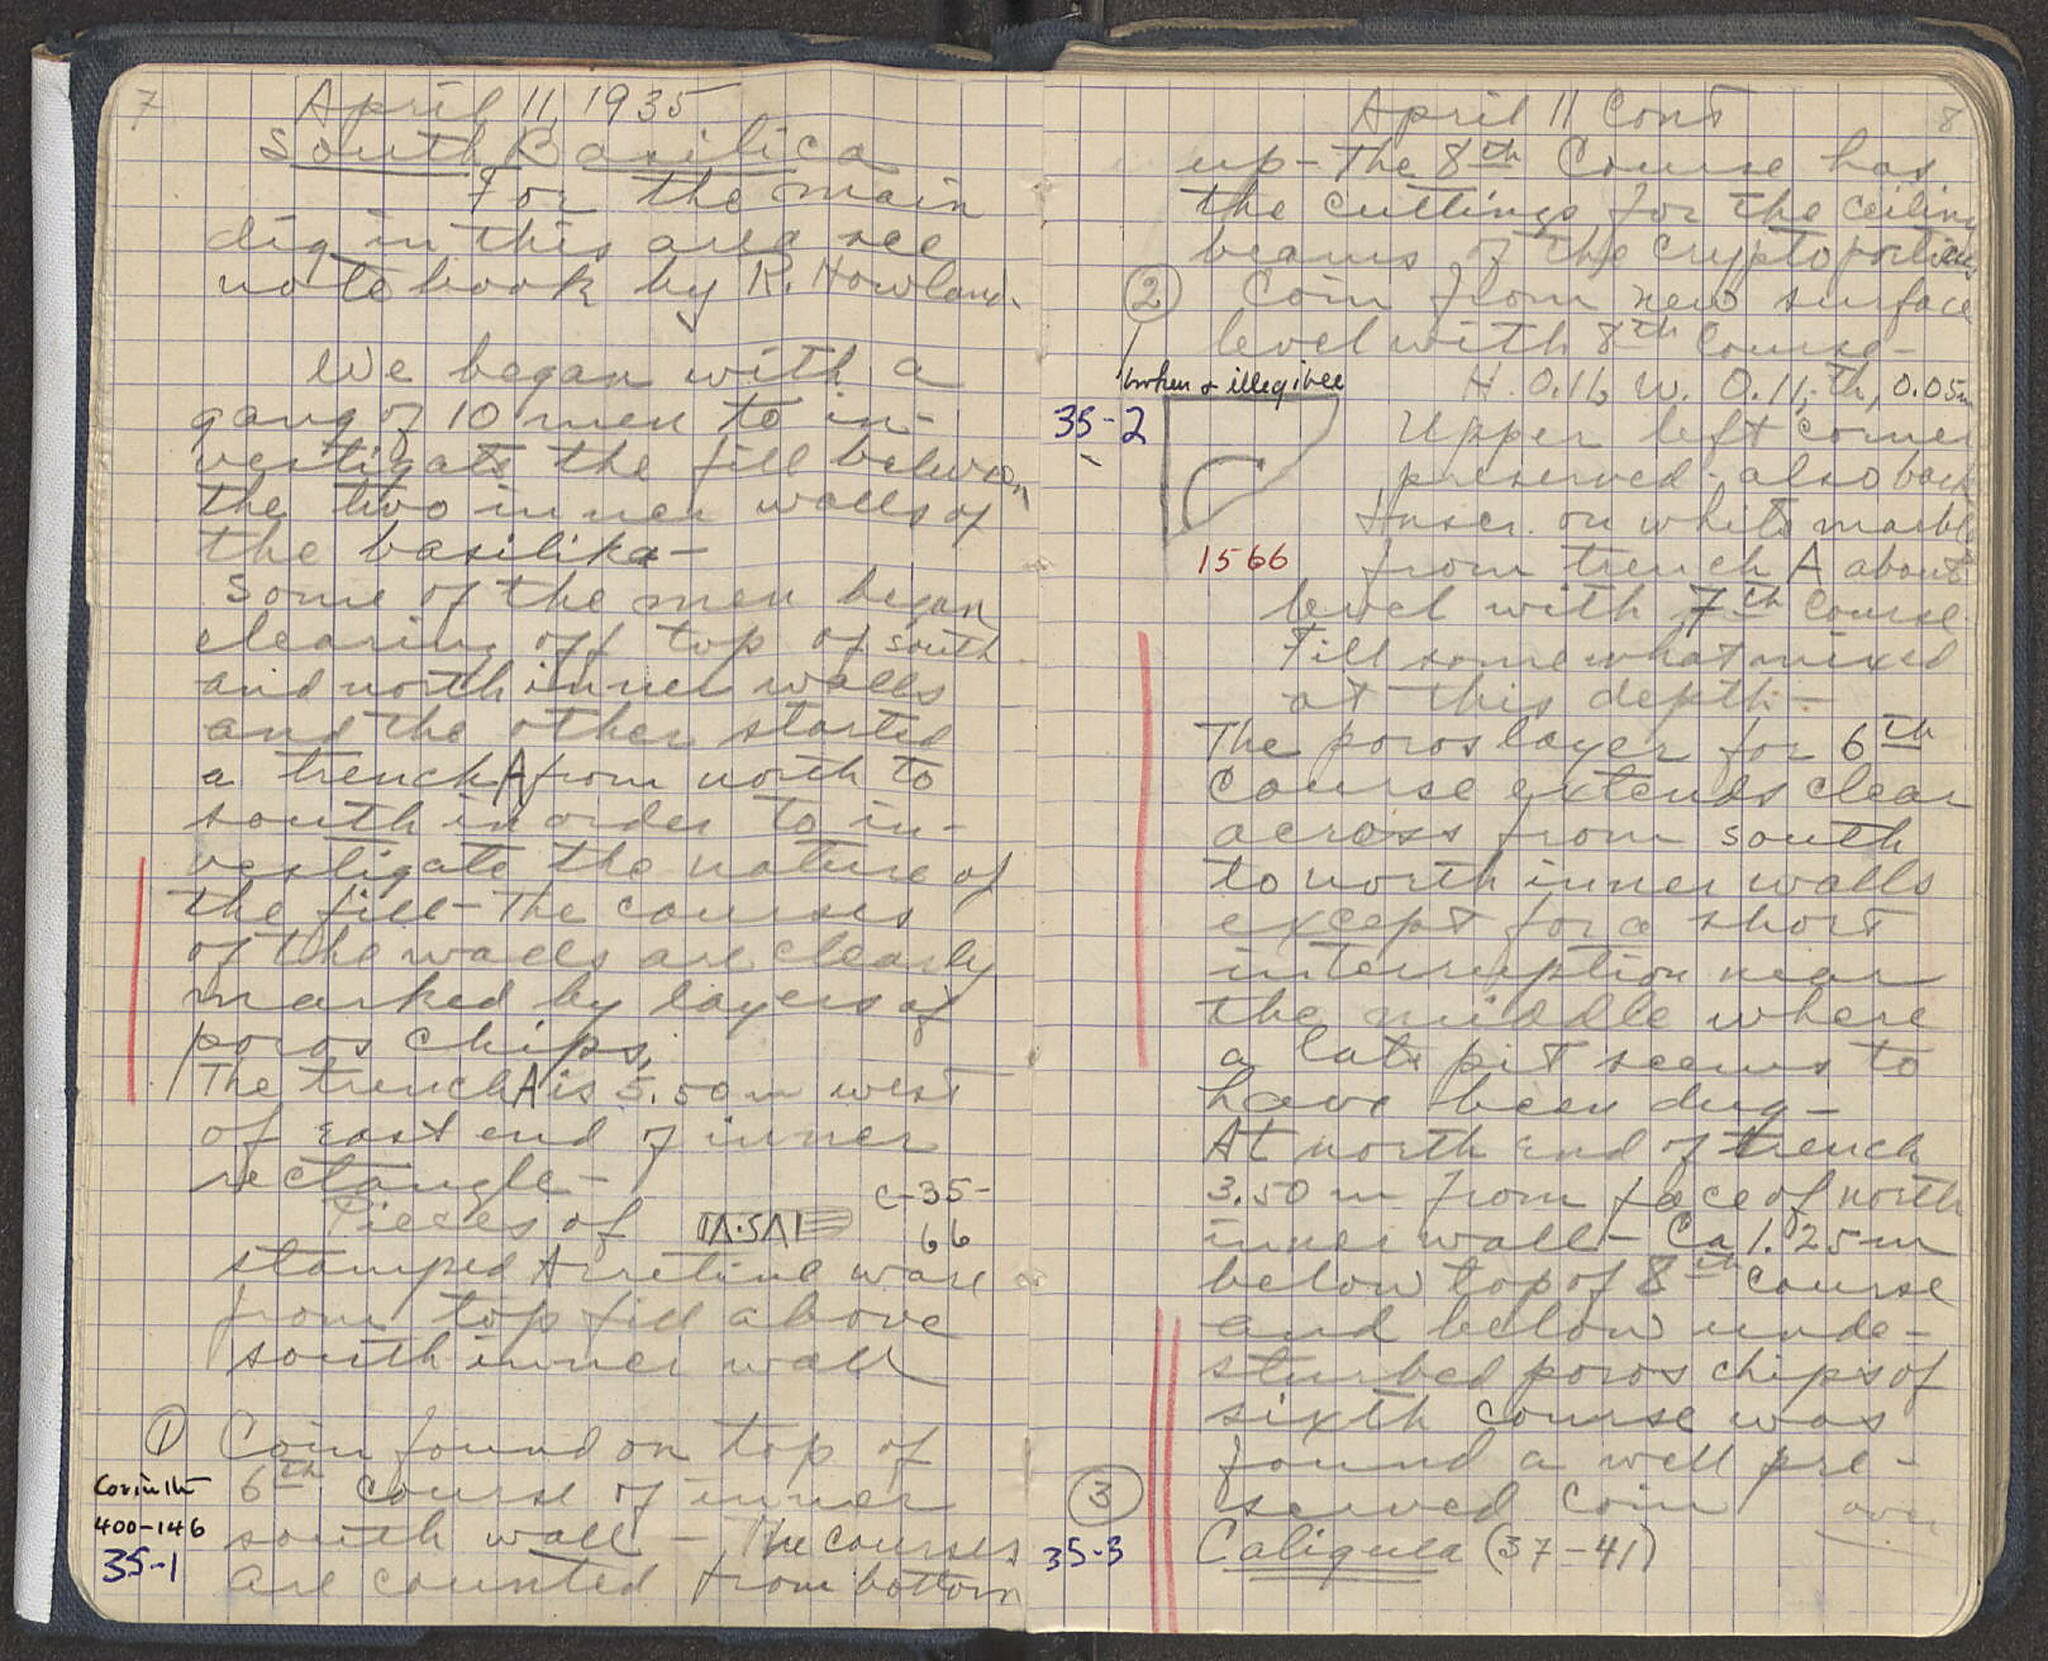 7
April 11, 1935
South Basilica
For the main
dig in this area see
notebook by R. Howland.
We began with a
gang of 10 men to in-
vestigate the fill between
the two inner walls of
the basilika-
Some of the men began
clearing off top of south
and north inner walls
and the other started
a trench A from north to
south in order to in-
vestigate the nature of
the fill - The courses
of the walls are clearly
marked by layers of
poros chips.
The trench A is 5.50 m west
of east end of inner
rectangle -
C-35-
66
Pieces of
stamped Arretine ware
from top fill above
south inner wall
① Coin found on top of
6th course of inner
south wall - The courses
are counted from bottom
Corinth
400-146
35-1
April 11 Cont
8
up - The 8th Course has
the cuttings for the ceiling
beams of the cryptoporticus
② Coin from new surface
level with 8th Course -
broken & illegible
35-2
H. 0.16, W. 0.11, th, 0.05m
Upper left corner
preserved - also back
Inscr. on white marble
1566
from trench A about
level with 7th Course
Fill somewhat mixed
at this depth -
The poros layer for 6th
Course extends clear
across from south
to north inner walls
except for a short
interruption near
the middle where
a late pit seems to
have been dug -
At north end of trench
3.50 m from face of north
inner wall - Ca 1.25 m
below top of 8th course
and below unde-
sturbed poros chips of
sixth course was
found a well pre-
③ served coin over
35-3
Caligula (37-41)